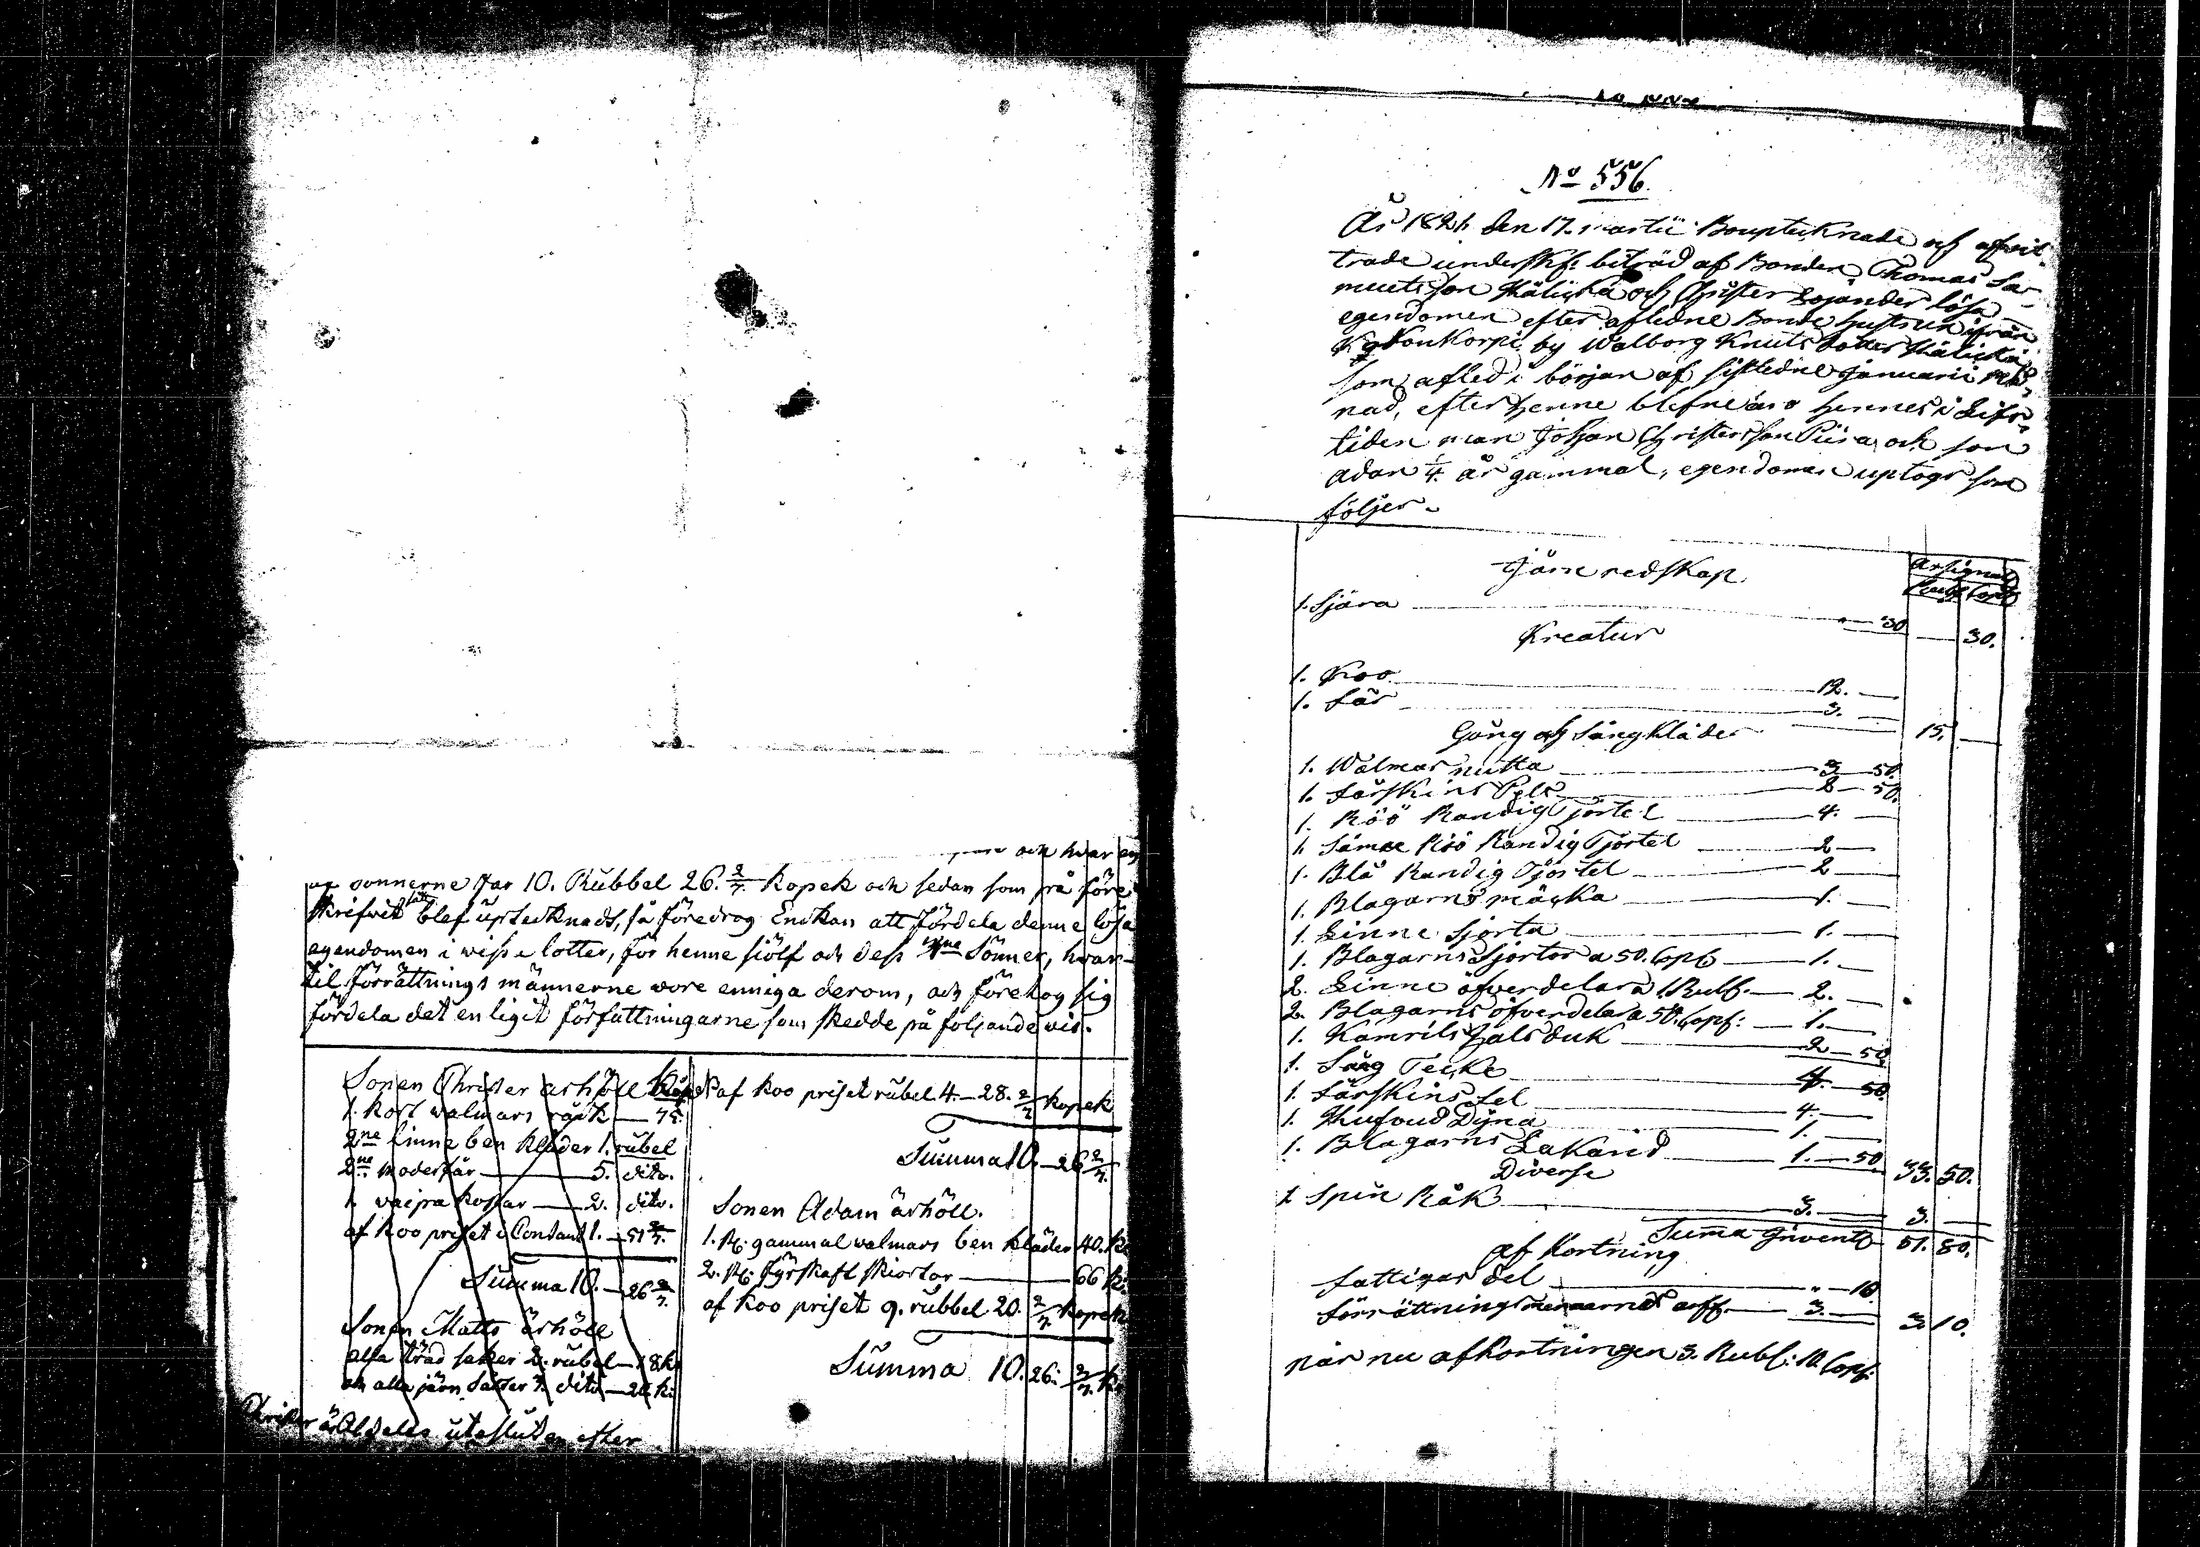 och hvar en
af sonnerne får 10. Rubbel 26. 2/7 kopek och sedan som på före
skrifvit sätt blef uptecknadt, så föredrog Enckan att fördela denne lösa
egendomen i wisse lotter, för henne siölf och dess Söner, hvar-
til förrättnings männerne wore enniga derom, och företog sig
fördela det enligit författningarne som skedde på foljande vis.
Sonen Christer ärhöll
1. kort walmars råck — 75.
2ne linne ben kläder 1. rubel
2ne moderfår — 5. dito.
1. vaipa — 2. dito.
af koo priset 1. — 51 3/7.
Summa 10. — 26 2/7.
Sonen Matts ärhöll
alla träd saker 2. rubel — 18 k:
och alla järn saker 3. dito — 20 k:
Christer är Aldeles utesluten efter
af koo priset rubel 4. — 28. 2/7 kopek
Summa 10. — 26 2/7.
Sonen Adam ärhöll.
1. P: gammal walmars ben kläder 40. k:
2. P: fyrskaft skiortor — 66 k:
af koo priset 9. rubbel 20. 2/7 kopek
Summa 10. 26: 2/7 k:
No 556.
År 1821 den 17. martii Bouptecknade och
trade underskf: biträd af Bonden Thomas Sa-
muelsson och Christer lösa
egendomen efter afledne Bonde hustrun ifrån
by Walborg Knuts dotter
som afled i början af sistledne januarii må-
nad, efter henne blefne äro hennes i Lifs-
tiden man Johan Christersson Piira och son
adan 1/4 år gammal, egendomen uptogs som
följer.
Assignat
Rubl Cop
tjärn redskap
1. Sjära — " — 30 — 30.
Kreatur
1. Koo — 12. —
1. Får — 3. — 15. —
Gång och Sängkläder
1. Walmas mutta — 3 — 50.
1. Fårskins Pels — 2 — 50.
1. Röö Randig Tjortel — 4. —
1. Sämre Röö Randig Tjortel — 2 —
1. Blå Randig Tjortel — 2 —
1. Blagarns mäcka — 1. —
1. Linne Sjorta — 1. —
1. Blagarns Sjortor a 50. Cop — 1. —
2. Linne öfverdelar a 1 Rubl. — 2. —
2. Blagarns öfverdelar a 50. Cop: — 1. —
1. Kamrils halsduk — 2 — 50
1. Säng Tecke — 4. — 50
1. Fårskins Fel — 4. —
1. Hufvud Dyna — 1. —
1. Blagarns Lakand — 1. — 50 33. 50.
Diverse
1 Spin Råk — 3. — 3. —
Suma Invent 51. 80.
af Kortning
fattigas del — " — 10
förrättningsmännernes arff. — 3. — 3. 10.
når nu afkortningen 3. Rubl: 10 Cop: